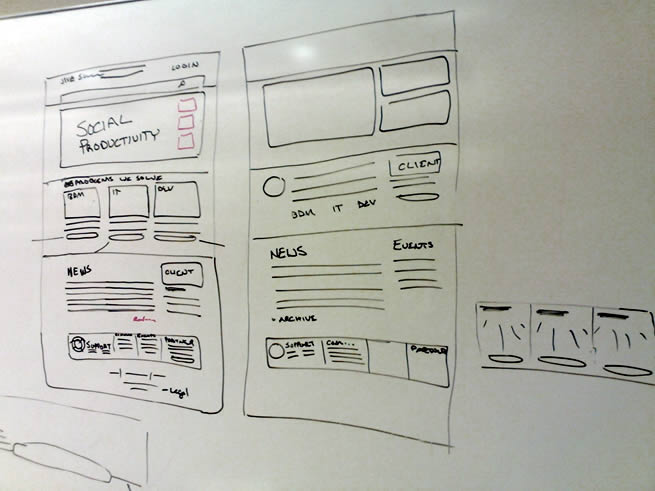 LOGIN
SOCIAL
PRODUCTIVITY
PROBLEMS WE SOLVE
BDM IT DEV
NEWS
CLIENT
SUPPORT EVENTS PARTNER
Legal
CLIENT
BDM IT DEV
NEWS EVENTS
ARCHIVE
SUPPORT COM...